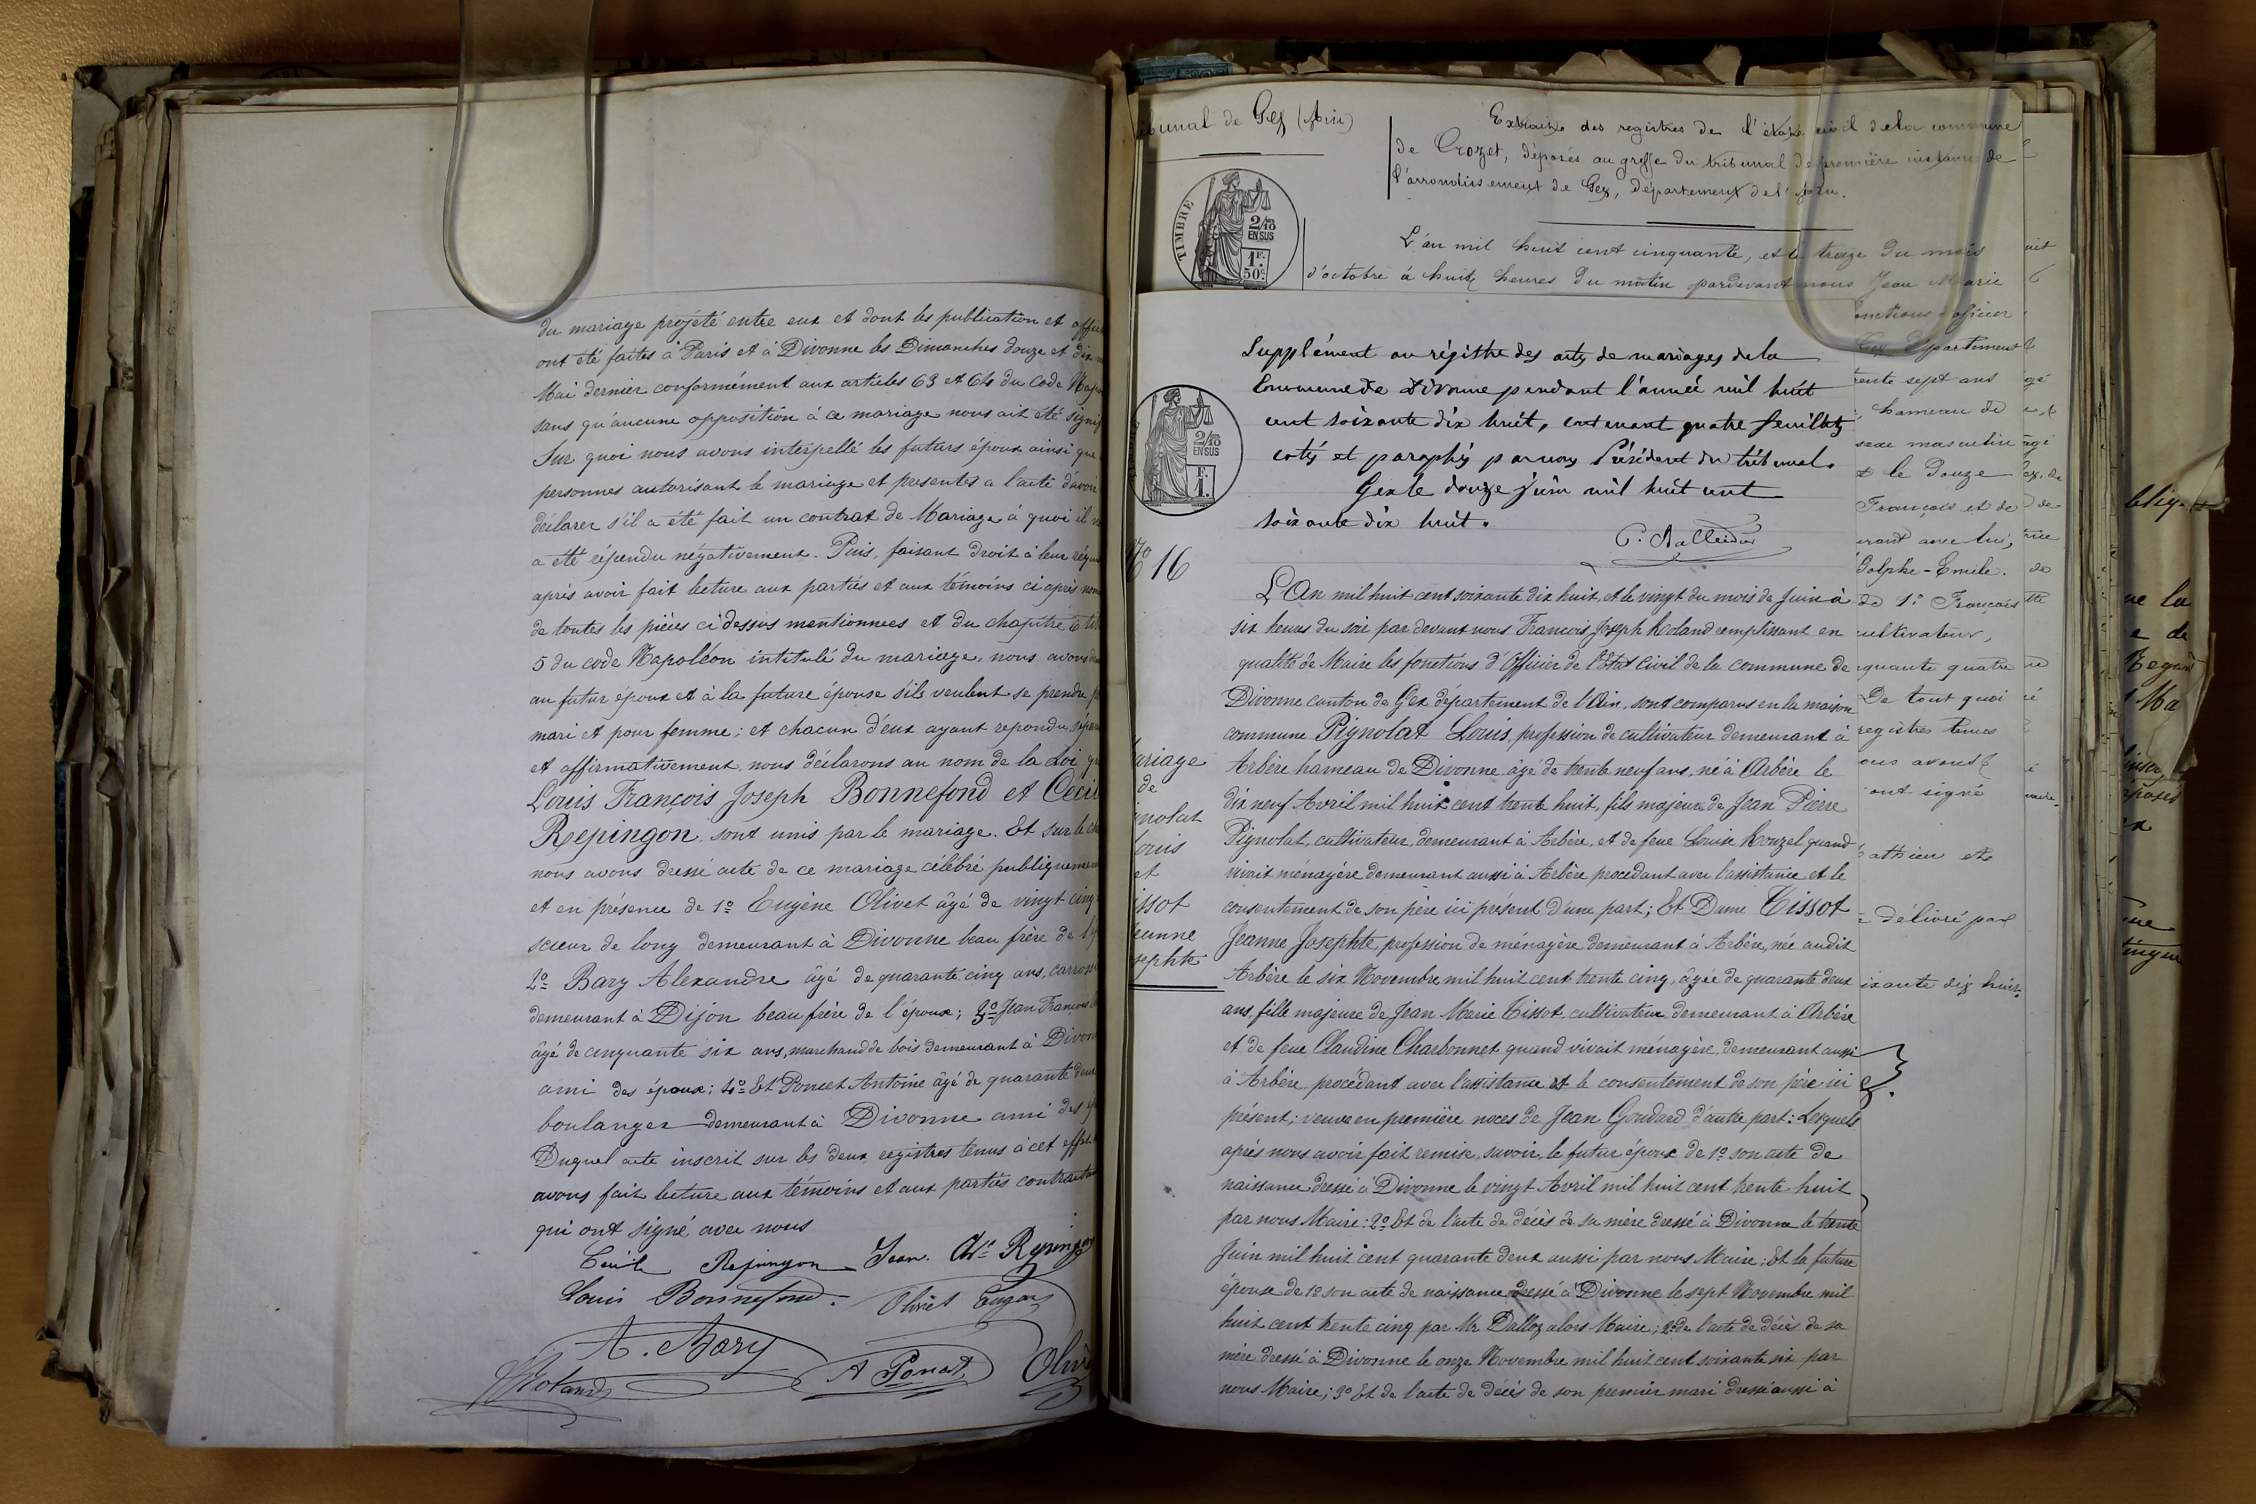 du mariage projeté entre eux et dont les publication et
ont été faites à Paris et à Divonne les Dimanches douze et
Mai dernier conformément aux articles 63 et 64 du Code
sans qu'aucune opposition à ce mariage nous ait été
Sur quoi nous avons interpellé les futurs époux ainsi que
personnes autorisant le mariage et présentes a l'acte d'avoir
déclarer s'il a été fait un contrat de Mariage à quoi il
a été répondu négativement. Puis, faisant droit à leur
après avoir fait lecture aux parties et aux témoins ci après
de toutes les pièces ci dessus mentionnées et du chapitre 6
5 du code Napoléon intitulé du mariage, nous avons
au futur époux et à la future épouse s'ils veulent se prendre
mari et pour femme; et chacun d'eux ayant repondu
et affirmativement, nous déclarons au nom de la Loi
Louis François Joseph Bonnefond et
Repingon sont unis par le mariage. Et sur le
nous avons dressé acte de ce mariage célébré
et en présence de 1º Eugène Olivet âgé de vingt cinq
scieur de long demeurant à Divonne beau frère de
2º Bary Alexandre âgé de quarante cinq ans,
demeurant à Dijon beau frère de l'époux; 3º Jean François
âgé de cinquante six ans, marchand de bois demeurant à
ami des époux; 4º Et Poncet Antoine âgé de quarante
boulanger demeurant à Divonne ami des
Duquel acte inscrit sur les deux registres tenus à cet
avons fait lecture aux témoins et aux parties
qui ont signé avec nous
Repingon Jean
Louis Bonnefond. Olivet
A. Bary
Roland A Poncet
de Gex (Ain)
Extrait des registres de l'état civil de la commune
de Crozet, déposés au greffe du tribunal de première instance de
l'arrondissement de Gex, département de l'Ain.
TIMBRE
2/10
EN SUS
1F.
50c.
L'an mil huit cent cinquante, et le treize du mois
d'octobre à huit heures du matin pardevant nous Jean Marie
Supplément au régithre des actes de mariages de la
Commune de Divonne pendant l'année mil huit
cent soixante dix huit, contenant quatre feuillets
cotés et paraphés par nous Président du tribunal.
Gex le douze juin mil huit cent
soixante dix huit.
2/10
EN SUS
F.
1.
Nº 16
L'An mil huit cent soixante dix huit, et le vingt du mois de Juin à
six heures du soir, par devant nous François Joseph Roland remplissant en
qualité de Maire les fonctions d'Officier de l'Etat Civil de la commune de
Divonne canton de Gex département de l'Ain, sont comparus en la maison
commune Pignolat Louis, profession de cultivateur demeurant à
Arbère hameau de Divonne âgé de trente neuf ans, né à Arbère le
dix neuf Avril mil huit cent trente huit, fils majeur de Jean Pierre
Pignolat, cultivateur, demeurant à Arbère, et de feue Louise Rouzel quand
vivait ménagère demeurant aussi à Arbère procédant avec l'assistance et le
consentement de son père ici présent d'une part; Et Dame Tissot
Jeanne Josephte, profession de ménagère demeurant à Arbère, née audit
Arbère le six Novembre mil huit cent trente cinq, âgée de quarante deux
ans, fille majeure de Jean Marie Tissot, cultivateur demeurant à Arbère
et de feue Claudine Charbonnet quand vivait ménagère, demeurant aussi
à Arbère, procédant avec l'assistance et le consentement de son père ici
présent; veuve en première noces de Jean Goudard d'autre part: Lesquels
après nous avoir fait remise, savoir, le futur époux de 1º son acte de
naissance dressé à Divonne le vingt Avril mil huit cent trente huit
par nous Maire: 2º Et de l'acte de décès de sa mère dressé à Divonne le trente
Juin mil huit cent quarante deux aussi par nous Maire; Et la future
épouse de 1º son acte de naissance dressé à Divonne le sept Novembre mil
huit cent trente cinq par Mr Dalloz alors Maire; 2º de l'acte de décès de sa
mère dressé à Divonne le onze Novembre mil huit cent soixante six par
nous Maire; 3º Et de l'acte de décès de son premier mari dressé aussi à
et
de
département
trente sept ans
hameau de
sexe masculin
et le douze
François et de
avec lui,
Emile.
de 1º François
cultivateur,
quante quatre
De tout quoi
registres tenus
ont signé
et
délivré par
soixante dix huit.